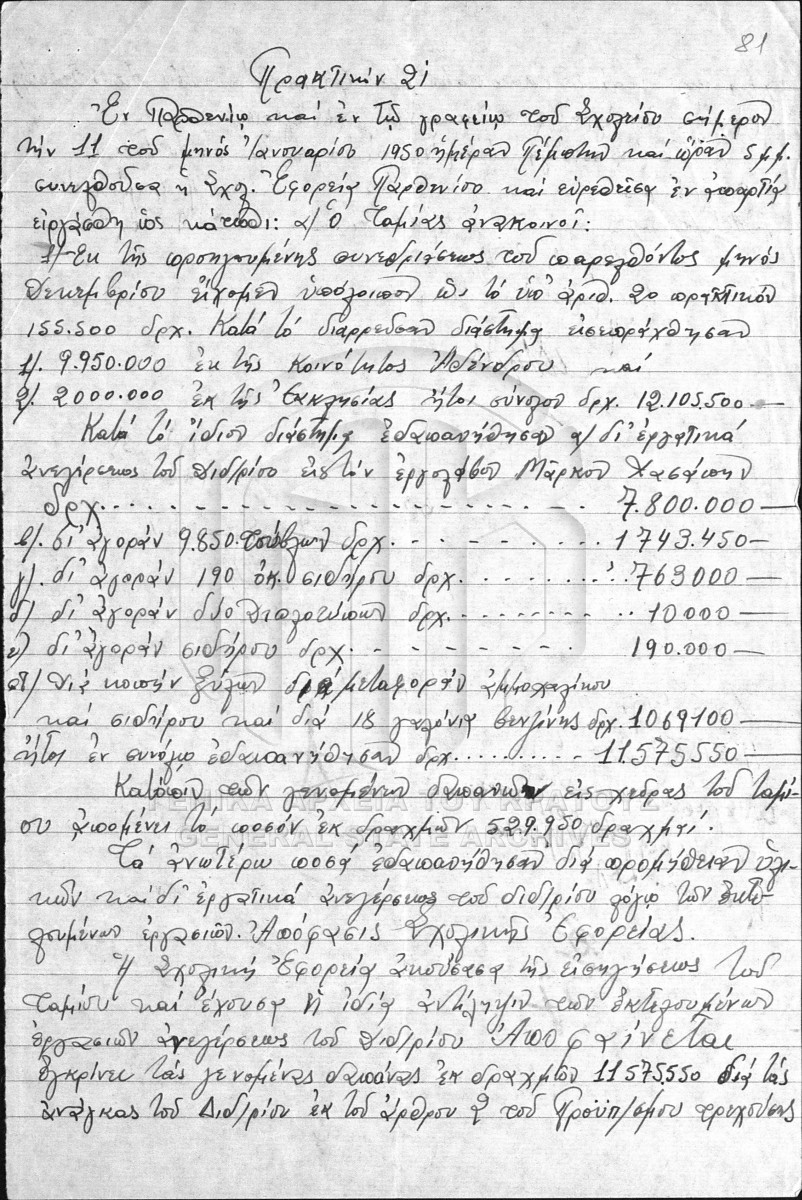 81
Πρακτικόν 21
Ἐν Παρθενίῳ καί ἐν τῷ γραφείῳ τοῦ Σχολείου σήμερον
τήν 11 τοῦ μηνός Ἰανουαρίου 1950 ἡμέραν Πέμπτην καί ὥραν 5 μμ.
συνελθοῦσα ἡ Σχολ. Ἐφορεία Παρθενίου καί εὑρεθεῖσα ἐν ἀπαρτίᾳ
εἰργάσθη ὡς κάτωθι: α/ Ὁ Ταμίας ἀνακοινοῖ:
1/ Ἐκ τῆς προηγουμένης συνεδριάσεως τοῦ παρελθόντος μηνός
Δεκεμβρίου εἴχομεν ὑπόλοιπον ὡς τό ὑπ' ἀριθ. 20 πρακτικόν
155.500 δρχ. Κατά τό διαρρεῦσαν διάστημα εἰσεπράχθησαν
1/. 9.950.000 ἐκ τῆς Κοινότητος Ἀδένδρου καί
2/. 2000.000 ἐκ τῆς Ἐκκλησίας ἤτοι σύνολον δρχ. 12.105.500—
Κατά τό ἴδιον διάστημα ἐδαπανήθησαν α/ δι' ἐργατικά
ἀνεγέρσεως τοῦ Διδ/ρίου εἰς τόν ἐργολάβον Μᾶρκον Χασάπην
δρχ. . . . . . . . . . . . . . . . . 7.800.000—
β/. δι' ἀγοράν 9.850 τούβλων δρχ. . . . . . . . 1743.450—
γ/. δι' ἀγοράν 190 ὀκ. σιδήρου δρχ. . . . . . . . 763000—
δ/ δι' ἀγοράν δύο δρχ. . . . . . . . 10000—
ε/ δι' ἀγοράν σιδήρου δρχ. . . . . . . . 190.000—
στ/ Διά κοπήν ξύλων διά μεταφοράν ἀμμοχαλίκου
καί σιδήρου καί διά 18 γαλόνια βενζίνης δρχ. 1069100—
ἤτοι ἐν συνόλῳ ἐδαπανήθησαν δρχ. . . . . . . . . 11.575550—
Κατόπιν τῶν γενομένων δαπανῶν εἰς χεῖρας τοῦ ταμί-
ου ἀπομένει τό ποσόν ἐκ δραχμῶν 529.950 δραχμαί.
Τά ἀνωτέρω ποσά ἐδαπανήθησαν διά προμήθειαν ὑλι-
κῶν καί δι' ἐργατικά ἀνεγέρσεως τοῦ διδ/ρίου λόγῳ τῶν ἐκτε-
λουμένων ἐργασιῶν. Ἀπόφασις Σχολικῆς Ἐφορείας.
Ἡ Σχολική Ἐφορεία ἀκούσασα τῆς εἰσηγήσεως τοῦ
Ταμίου καί ἔχουσα ἡ ἰδία ἀντίληψιν τῶν ἐκτελουμένων
ἐργασιῶν ἀνεγέρσεως τοῦ Διδ/ρίου Ἀποφαίνεται
Ἐγκρίνει τάς γενομένας δαπάνας ἐκ δραχμῶν 11575550 διά τάς
ἀνάγκας τοῦ Διδ/ρίου ἐκ τοῦ ἄρθρου 2 τοῦ Προϋπ/σμου τρεχούσης
ΓΕΝΙΚΑ ΑΡΧΕΙΑ ΤΟΥ ΚΡΑΤΟΥΣ
GENERAL STATE ARCHIVES